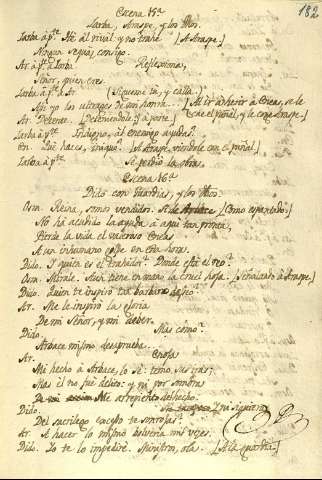 182
Escena 15ª
Iarba Araspe, y los dhos.
Iarba á pte. He ál rival: y no trahe [A Araspe.]
Ningun sequás, consigo.
Ar. á pte. á Iarba Reflexiona,
Señor, quien eres.
Iarba á pte. á Ar. (Sigueme tu, y calla.)
Asi yo los ultrages de mi honra... [Al ir á herir á Eneas, se le cae el puñal, y le coge Araspe.]
Ar. Detente. [Deteniendole, y á parte.]
Iarba á pte. Indigno, ál enemigo ayudas?
En. Qué haces, iniquo? [A Araspe, viendole con el puñal.]
Iarba á pte. Se perdió la obra.
Escena 16ª
Dido con Guardias, y los dhos.
Osm. Reina, somos vendidos. [Como espantado.]
No há acudido la ayuda á aqui tan pronta,
Perdia la vida el valeroso Eneas
A un inhumano golpe en esta hora.
Dido. Y quien es el traidor? Donde está el reo?
Osm. Mirale. Aun tiene en mano la cruel hoja. [Señalando á Araspe.]
Dido. Quien te inspiró tan barbaro
Ar. Me lo inspiró la gloria
De mi Señor, y mi deber.
Dido. Mas como?
Arbace mismo desaprueba.
Ar.
Mi hecho á Arbace, lo sé:
Mas él no fué delito: y ni por sombra
Me arrepiento de hecho.
Dido. Y ni siquiera
Del sacrilego exceso te sonrojas?
Ar. A hacer lo mismo bolveria mil veces.
Dido. Io te lo impediré. Ministros, ola. [A la guardia.]